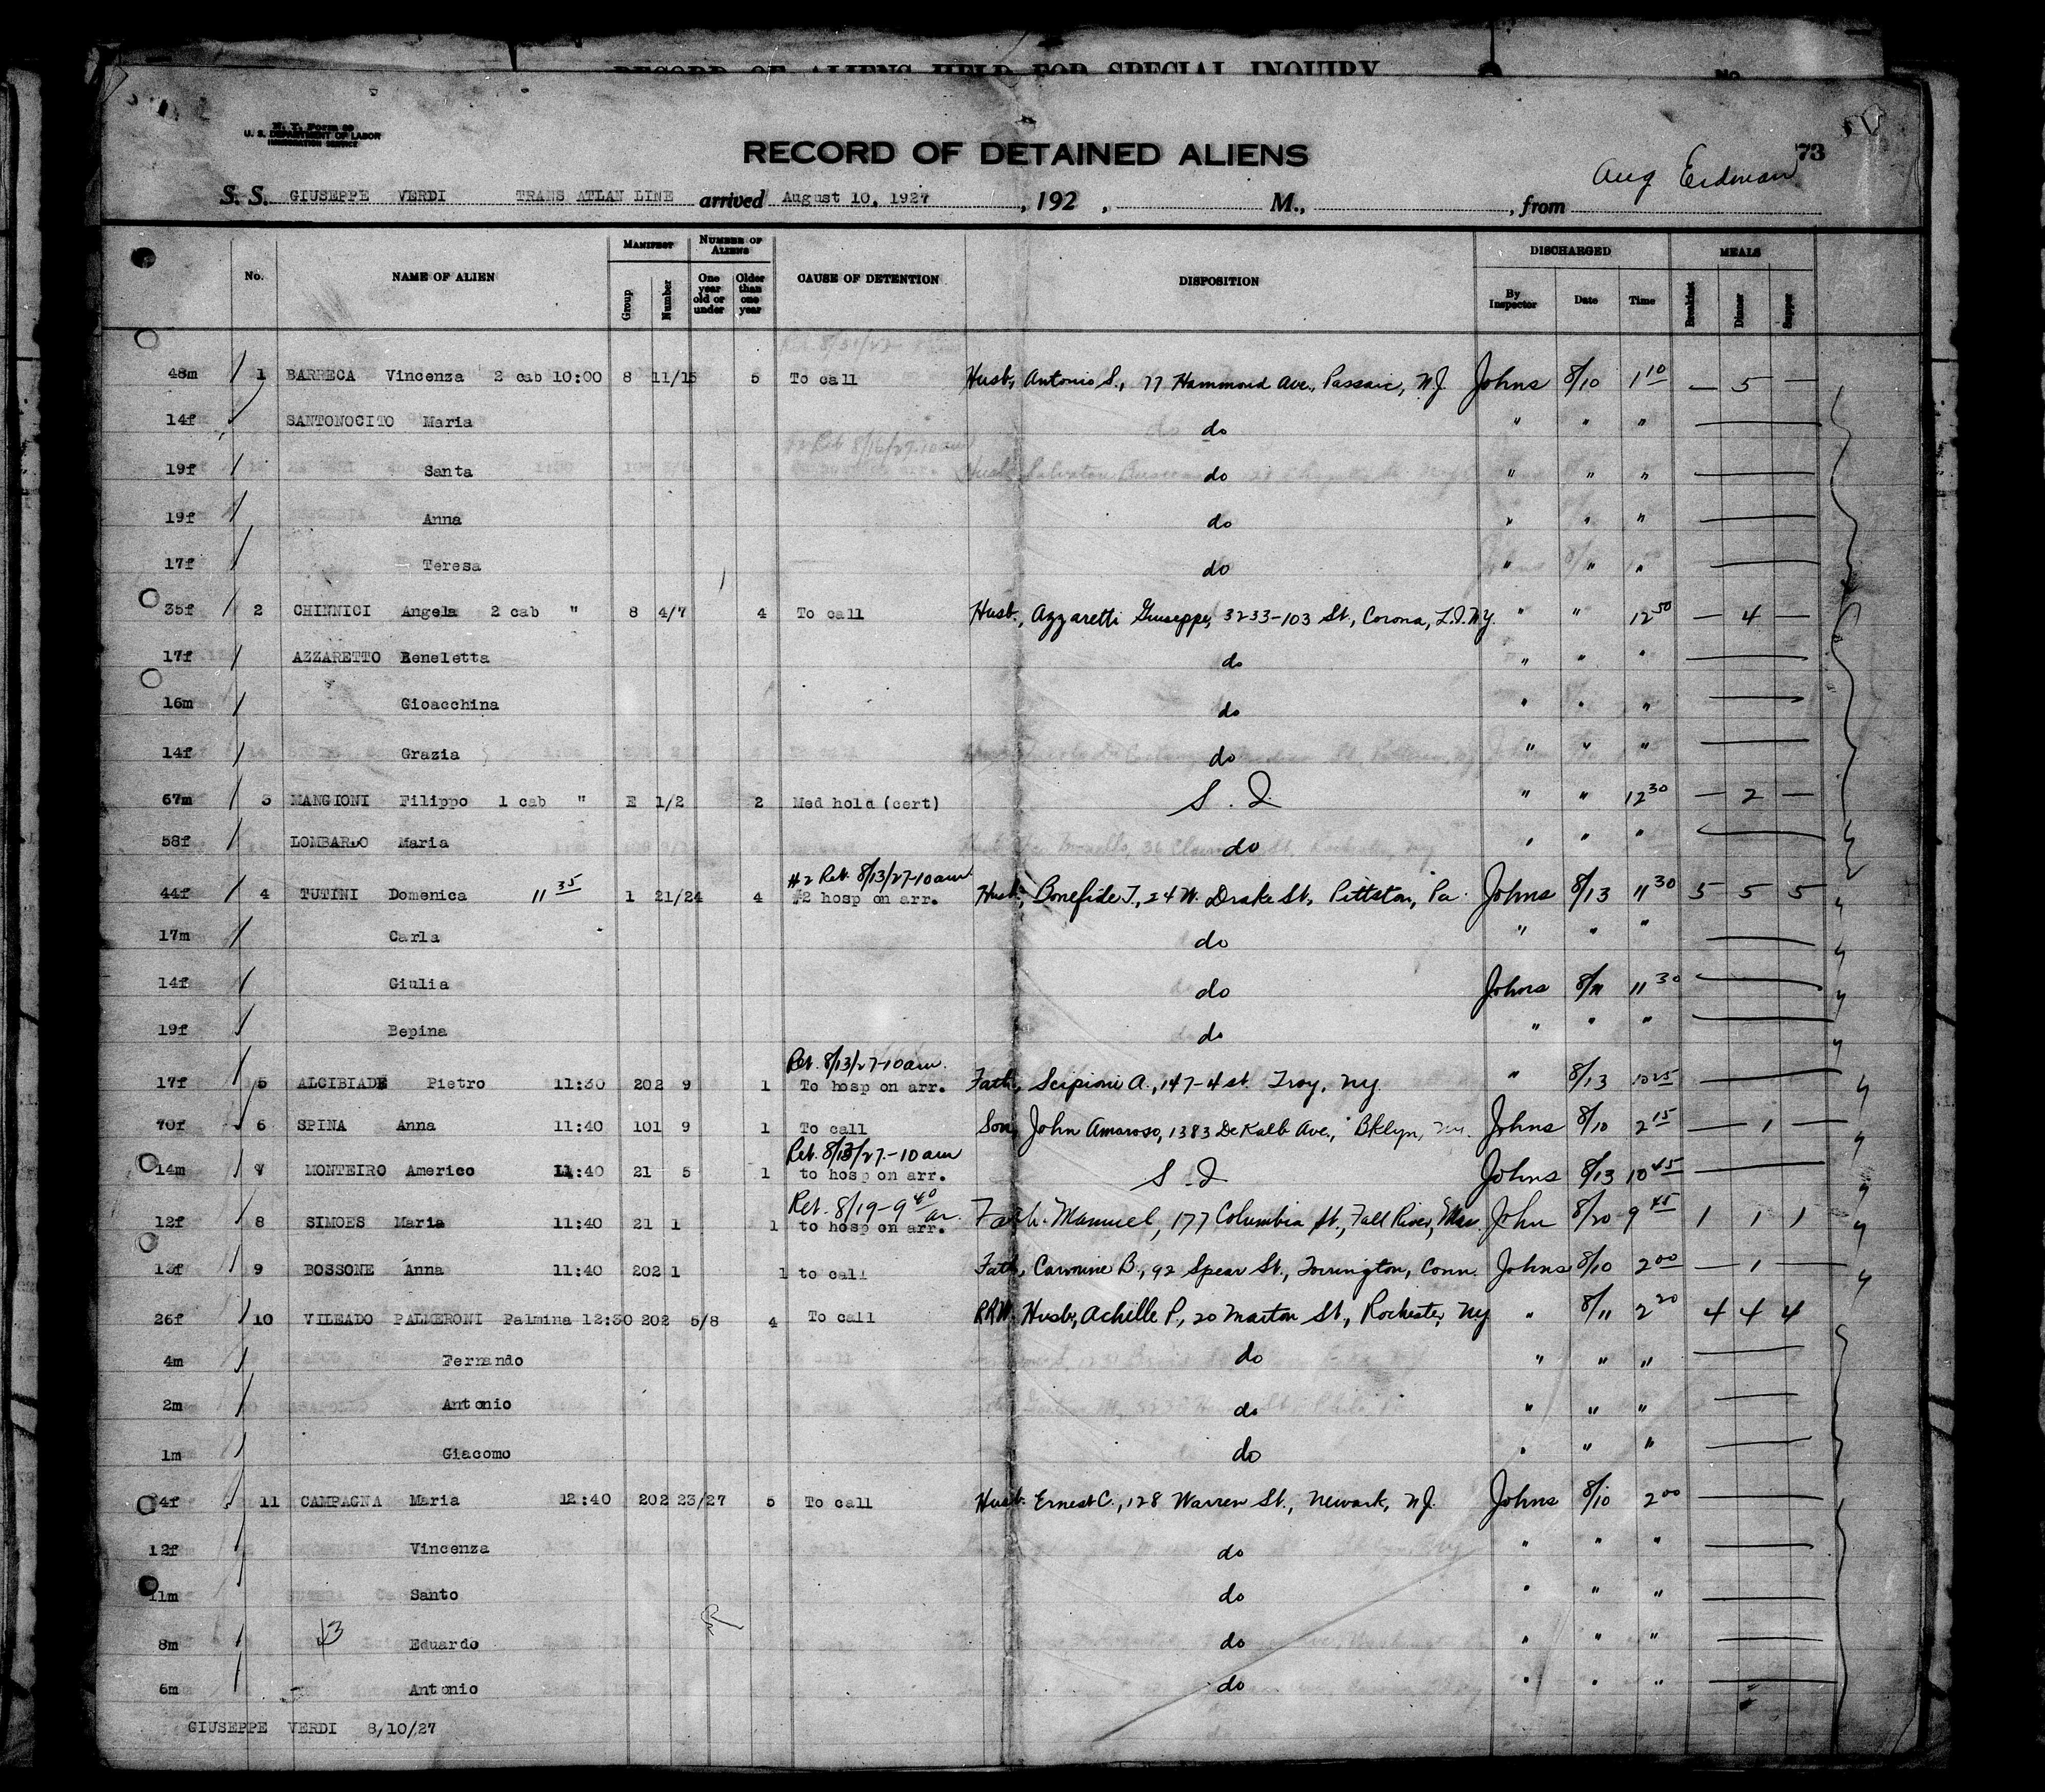 RECORD OF ALIENS HELD FOR SPECIAL INQUIRY
No.
N. Y. Form 99
U. S. DEPARTMENT OF LABOR
IMMIGRATION SERVICE
RECORD OF DETAINED ALIENS
73
Aug Erdman
S. S. GIUSEPPE VERDI TRANS ATLAN LINE arrived August 10, 1927, 192 , M., , from
No. NAME OF ALIEN MANIFEST Group Number NUMBER OF ALIENS One year old or under Older than one year CAUSE OF DETENTION DISPOSITION DISCHARGED By Inspector Date Time MEALS Breakfast Dinner Supper
48m 1 BARRECA Vincenza 2 cab 10:00 8 11/15 5 To call Husb, Antonio S., 77 Hammond Ave., Passaic, N.J. Johns 8/10 1 10 — 5 —
14f SANTONOCITO Maria do " " "
19f Santa do " " "
19f Anna do " " "
17f Teresa do " " "
35f 2 CHINNICI Angela 2 cab " 8 4/7 4 To call Husb., Azzaretti Giuseppe, 3233-103 St., Corona, L.I.N.Y. " " 12 50 — 4 —
17f AZZARETTO Beneletta do " " "
16m Gioacchina do " " "
14f Grazia do " " "
67m 3 MANGIONI Filippo 1 cab " E 1/2 2 Med hold (cert) S. I. " " 12 30 — 2 —
58f LOMBARDO Maria do " " "
#2 Ret. 8/13/27-10am
44f 4 TUTINI Domenica 11 35 1 21/24 4 #2 hosp on arr. Husb, Bonefide T., 24 W. Drake St., Pittston, Pa. Johns 8/13 11 30 5 5 5
17m Carla do " " "
14f Giulia do Johns 8/11 11 30
19f Bepina do " " "
Ret. 8/13/27-10am.
17f 5 ALCIBIADE Pietro 11:30 202 9 1 To hosp on arr. Fath, Scipioni A., 147-4 st. Troy, NY " 8/13 10 25
70f 6 SPINA Anna 11:40 101 9 1 To call Son, John Amoroso, 1383 DeKalb Ave., Bklyn, Johns 8/10 2 15 — 1 —
Ret. 8/13/27.-10am
14m 7 MONTEIRO Americo 11:40 21 5 1 to hosp on arr. S. I. Johns 8/13 10 45
Ret. 8/19-9 40
12f 8 SIMOES Maria 11:40 21 1 1 to hosp on arr. Fath. Manuel, 177 Columbia St., Fall River, Mas. John 8/20 9 45 1 1 1
13f 9 BOSSONE Anna 11:40 202 1 1 to call Fath, Carmine B., 92 Spear St., Torrington, Conn. Johns 8/10 2 00 — 1 —
26f 10 VILEADO PALMERONI Palmina 12:30 202 5/8 4 To call Husb, Achille P., 20 Marton St., Rochester, NY " 8/11 2 20 4 4 4
4m Fernando do " " "
2m Antonio do " " "
1m Giacomo do " " "
34f 11 CAMPAGNA Maria 12:40 202 23/27 5 To call Husb. Ernest C., 128 Warren St., Newark, N.J. Johns 8/10 2 00
12f Vincenza do " " "
11m Santo do " " "
8m Eduardo do " " "
6m Antonio do " " "
GIUSEPPE VERDI 8/10/27